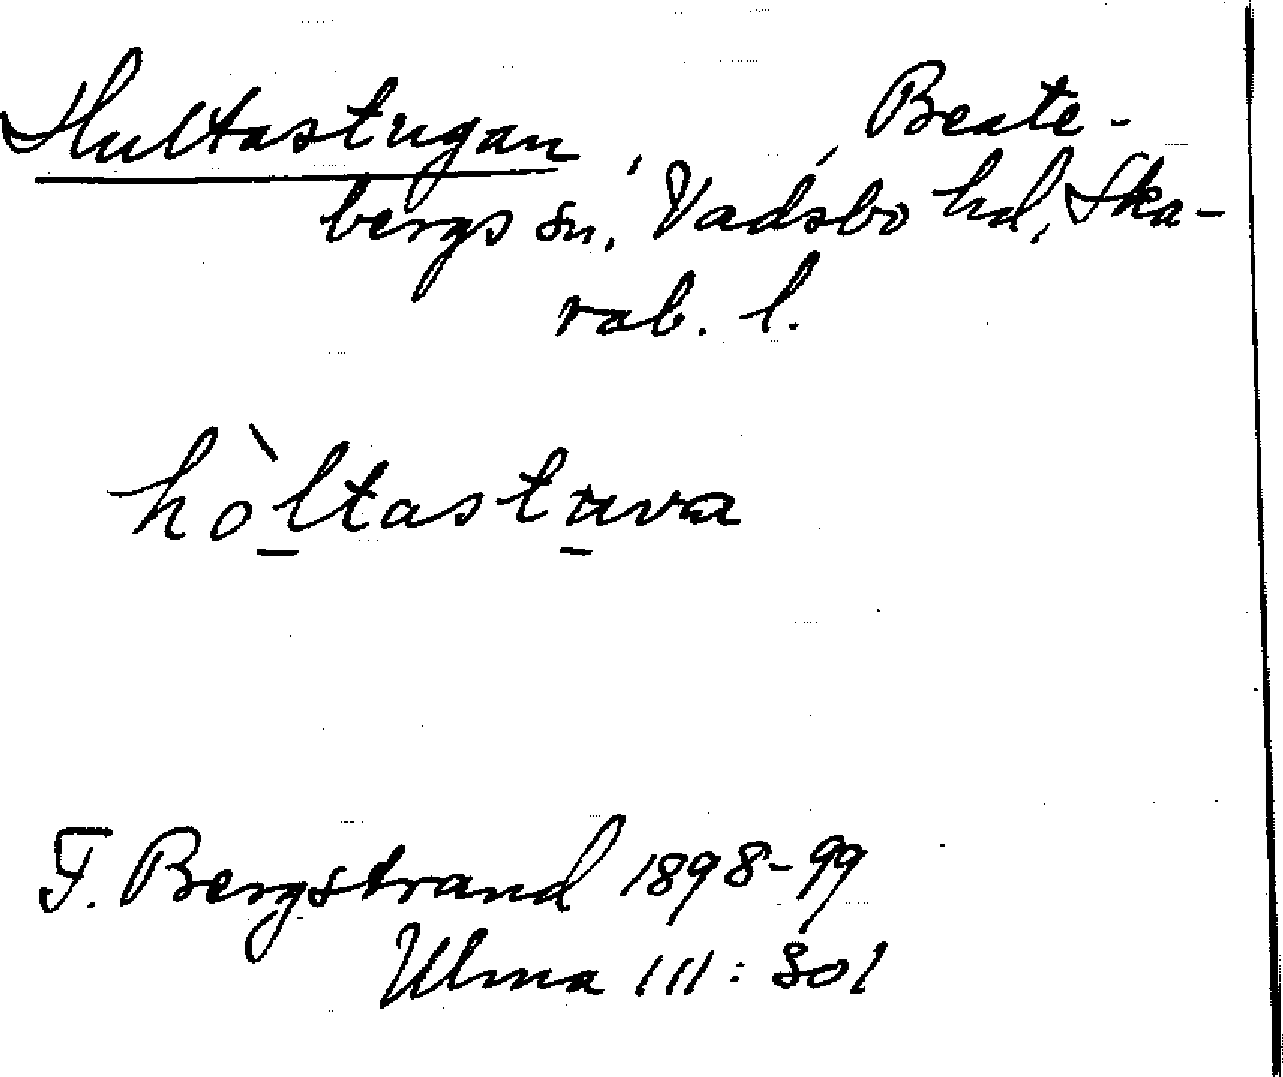 Hultastugan, Beate-
bergs sn, Vadsbo hd, Ska-
rab. l.
hòltastuva
F. Bergstrand 1898-99
Ulma 111:801